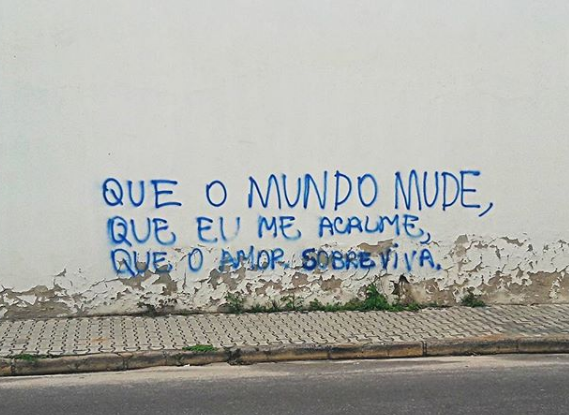 QUE O MUNDO MUDE,
QUE EU ME ACALME,
QUE O AMOR SOBREVIVA.